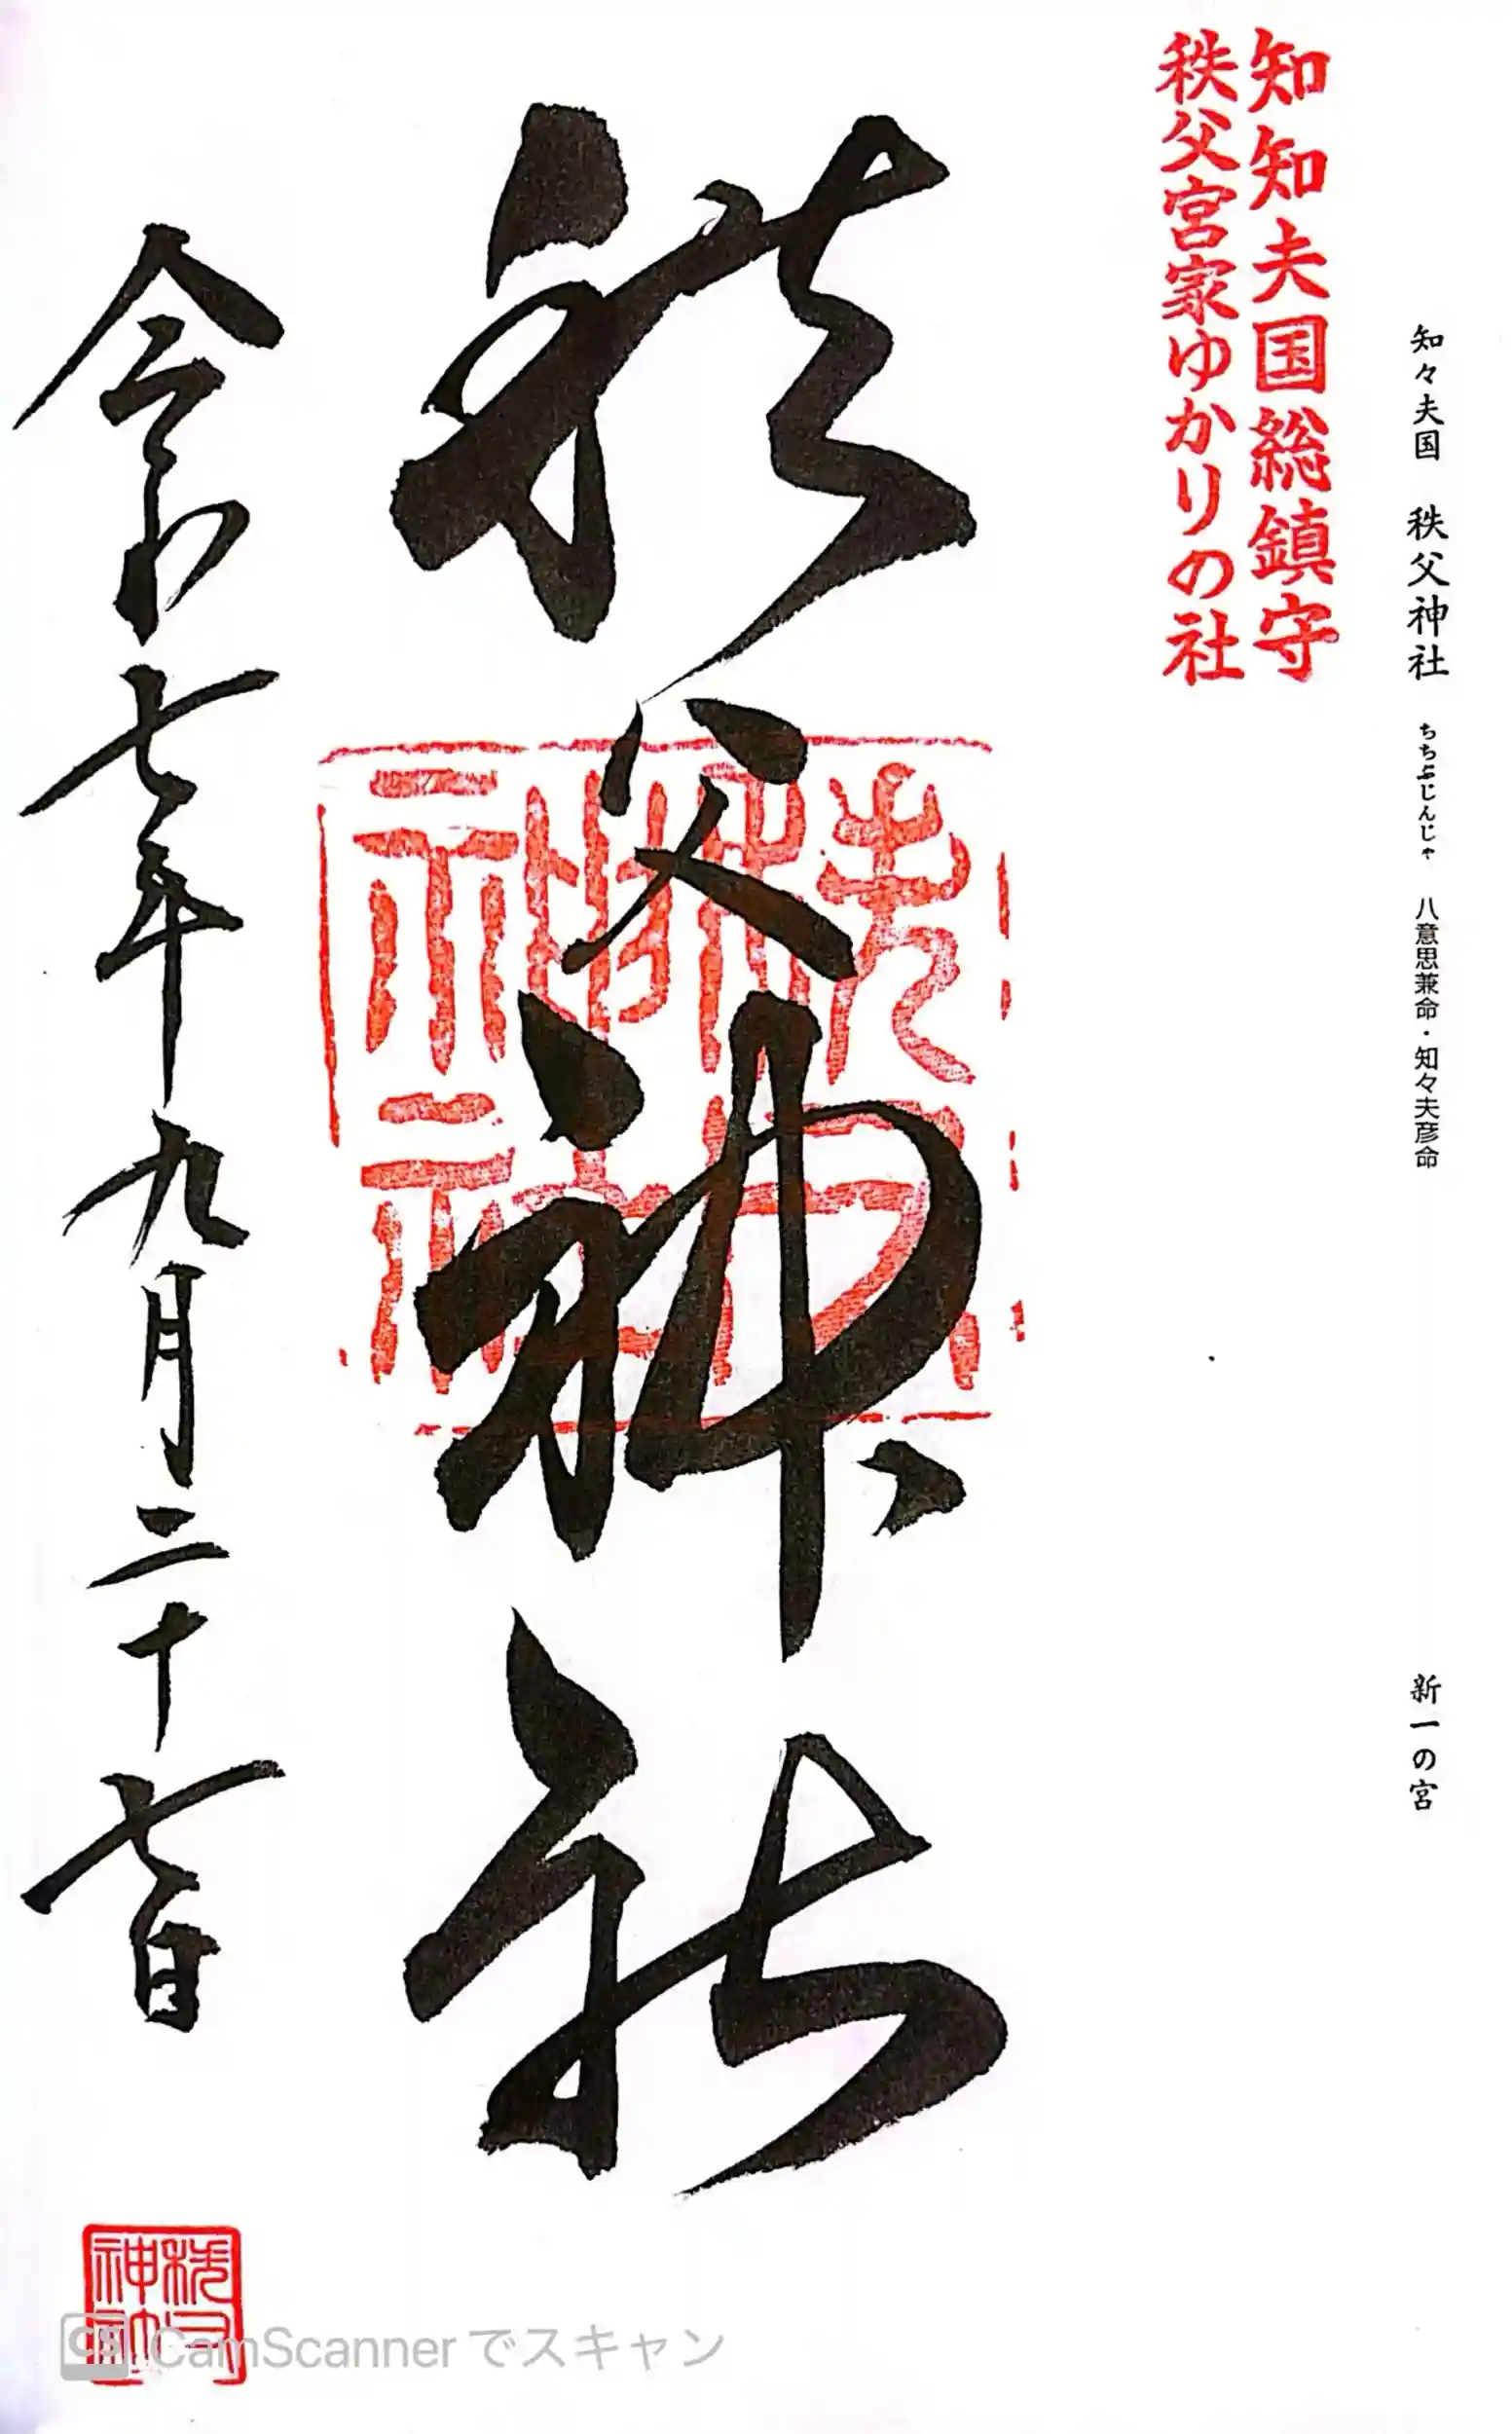 知々夫国 秩父神社 ちちぶじんじゃ 八意思兼命・知々夫彦命 新一の宮
知知夫国総鎮守
秩父宮家ゆかりの社
秩父神社
秩父神社
令和七年九月二十七日
秩父神社
CS CamScannerでスキャン